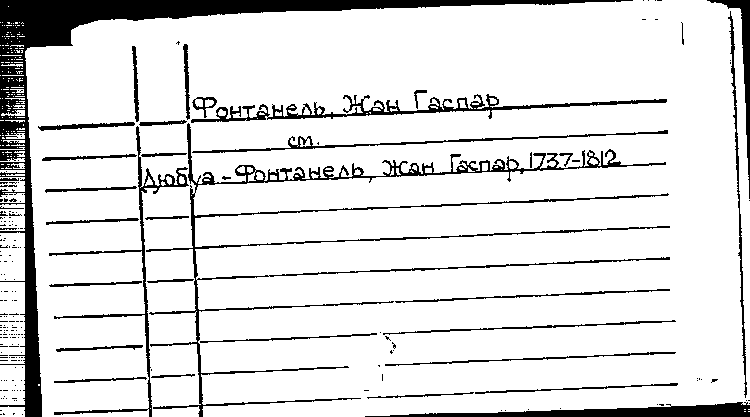 Фонтанель, Жан Гаспар
см.
Дюбуа-Фонтанель, Жан Гаспар, 1737-1812